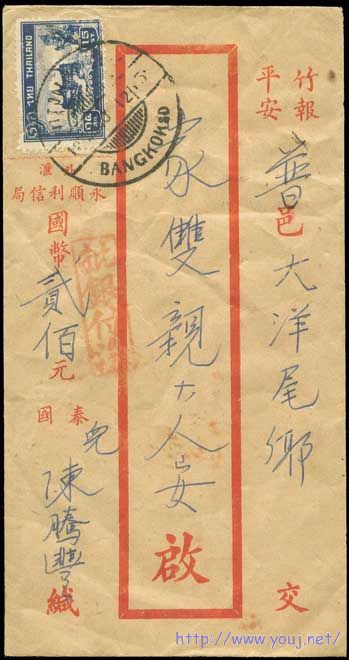 竹報
平安
普邑大洋尾鄉 交
家雙親大人安 啟
永順利信局
匯
國幣貳佰元
泰國
兒陳騰豐 緘
ไทย THAILAND
15
BANGKOK
http://www.youj.net/